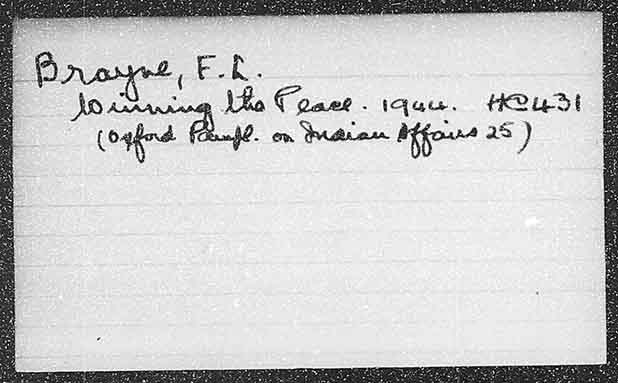 Brayne, F. L.
Winning the Peace. 1944. HC431
(Oxford Pamph. on Indian Affairs 25)